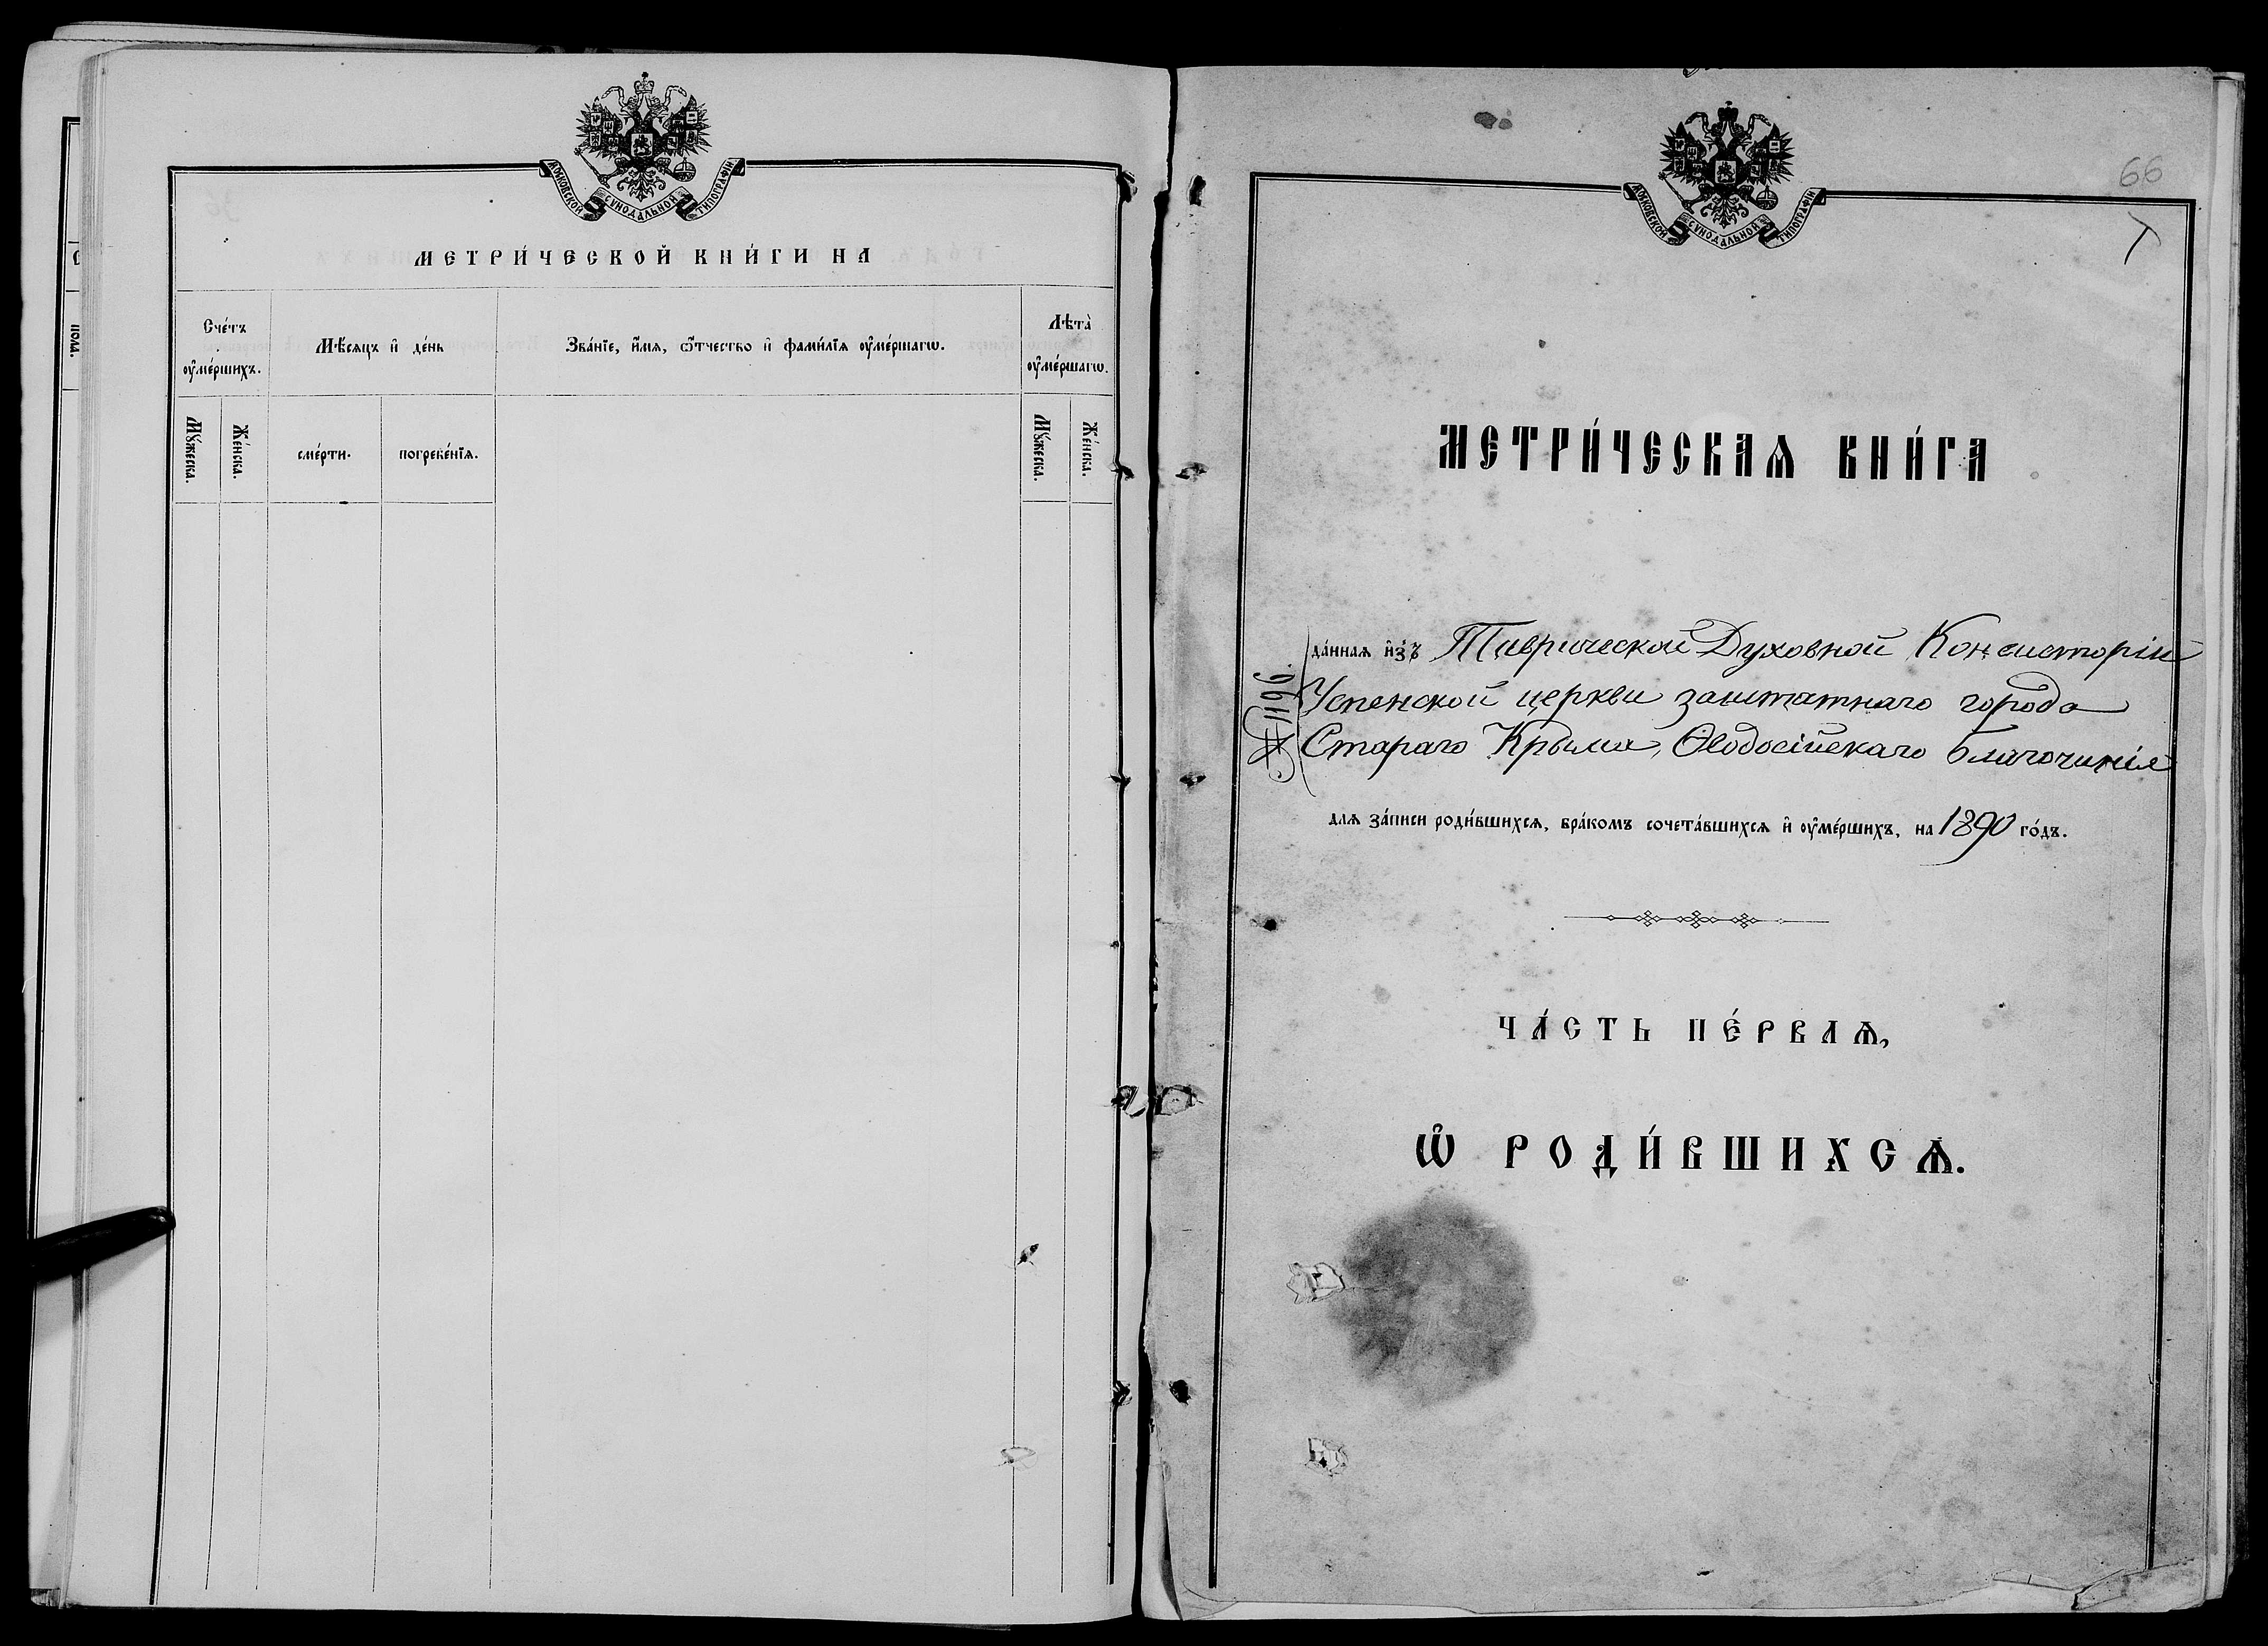 МОСКОВСКОЙ СѴНОДАЛЬНОЙ ТИПОГРАФІИ
МЕТРИ́ЧЕСКОЙ КНИ́ГИ НА
Сче́тъ ᲂу҆ме́ршихъ.
Мѣ́сяцъ и҆ де́нь
Зва́нїе, и҆́мя, ѻ҆́тчество и҆ фами́лїя ᲂу҆ме́ршагѡ.
Лѣта̀ ᲂу҆ме́ршагѡ.
Мꙋ́жеска.
Же́нска.
сме́рти.
погребе́нїя.
Мꙋ́жеска.
Же́нска.
пол.
МОСКОВСКОЙ СѴНОДАЛЬНОЙ ТИПОГРАФІИ
66
МЕТРИ́ЧЕСКАѦ КНИ́ГА
№ 1196.
да́ннаѧ и҆зъ Таврической Духовной Консисторіи
Успенской церкви заштатнаго города
Стараго Крыма, Ѳеодосійскаго благочинія
длѧ за́писи роди́вшихсѧ, бра́комъ сочета́вшихсѧ и҆ ᲂу҆ме́ршихъ, на 1890 го́дъ.
ЧА́СТЬ ПЕ́РВАѦ,
Ѡ҆ РОДИ́ВШИХСѦ.